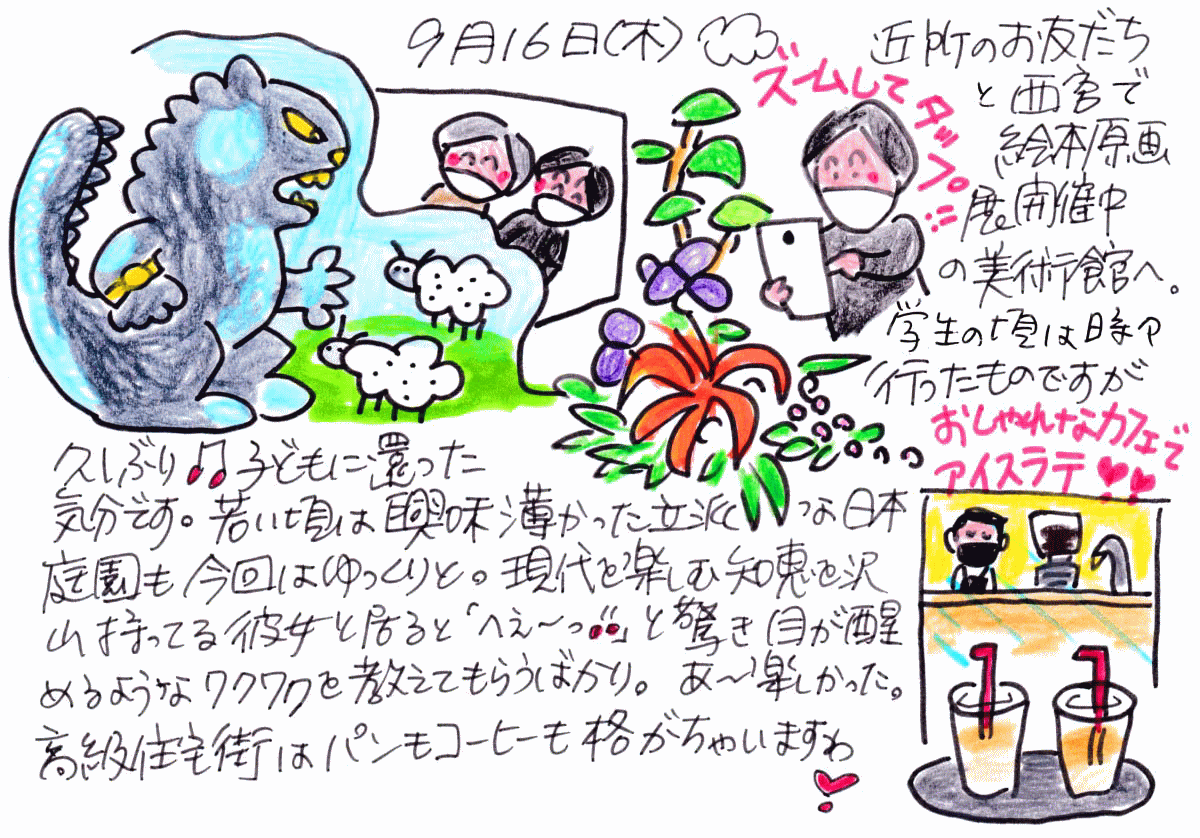 9月16日(木)
ズームして
タップ!!
近所のお友だち
と西宮で
絵本原画
展開催中
の美術館へ。
学生の頃は時々
行ったものですが
久しぶり♫子どもに還った
気分です。若い頃は興味薄かった立派な日本
庭園も今回はゆっくりと。現代を楽しむ知恵を沢
山持ってる彼女と居ると「へえ〜っ!!」と驚き目が醒
めるようなワクワクを教えてもらうばかり。あ〜楽しかった。
高級住宅街はパンもコーヒーも格がちゃいますわ
おしゃれなカフェで
アイスラテ♥♥